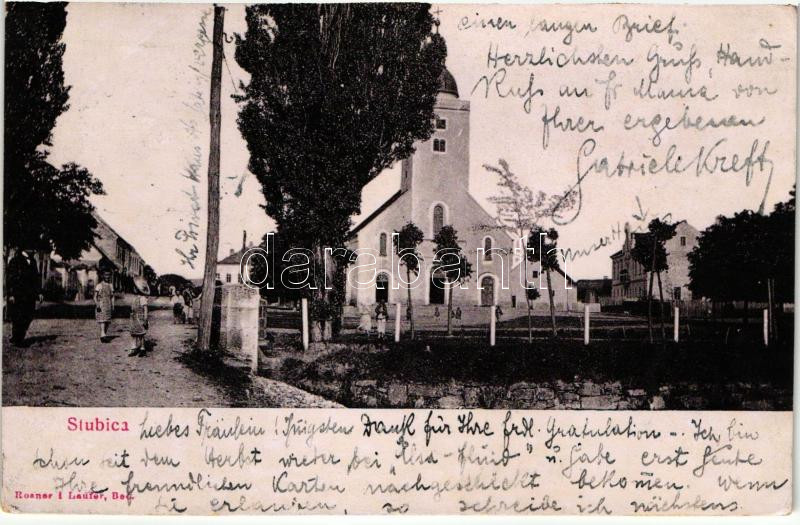 einen langen Brief.
Herzlichsten Gruss, Hand-
Kuss an Fr Mama von
Ihrer ergebenen
Gabriele Kreft
unser
darabanth
Stubica
Liebes Fräulein! Innigsten Dank für Ihre frdl. Gratulation – Ich bin
schon seit dem Herbst wieder bei " u. habe erst heute
Ihre freundlichen Karten nachgeschickt bekomen. Wenn
Sie erlauben, so schreibe ich nächstens.
Rosner i Laufer, Bed.